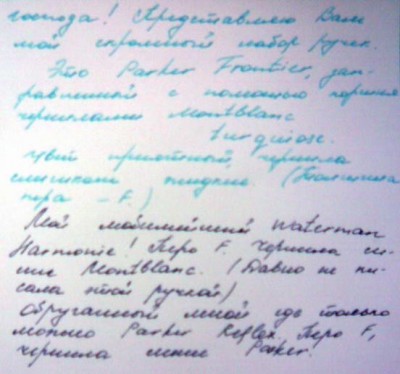 господа! Представляю Вам
мой скромный набор ручек.
Это Parker Frontier, зап-
равленной с помощью поршня
чернилами Montblanc
turquoise.
Цвет приятный, чернила
слишком жидкие. (Толщина
пера - F.)
Мой любимейший Waterman
Harmonie! Перо F. Чернила си-
ние Montblanc. (Давно не пи-
сала этой ручкой)
Обруганный мной где только
можно Parker Reflex. Перо F,
чернила синие Parker.